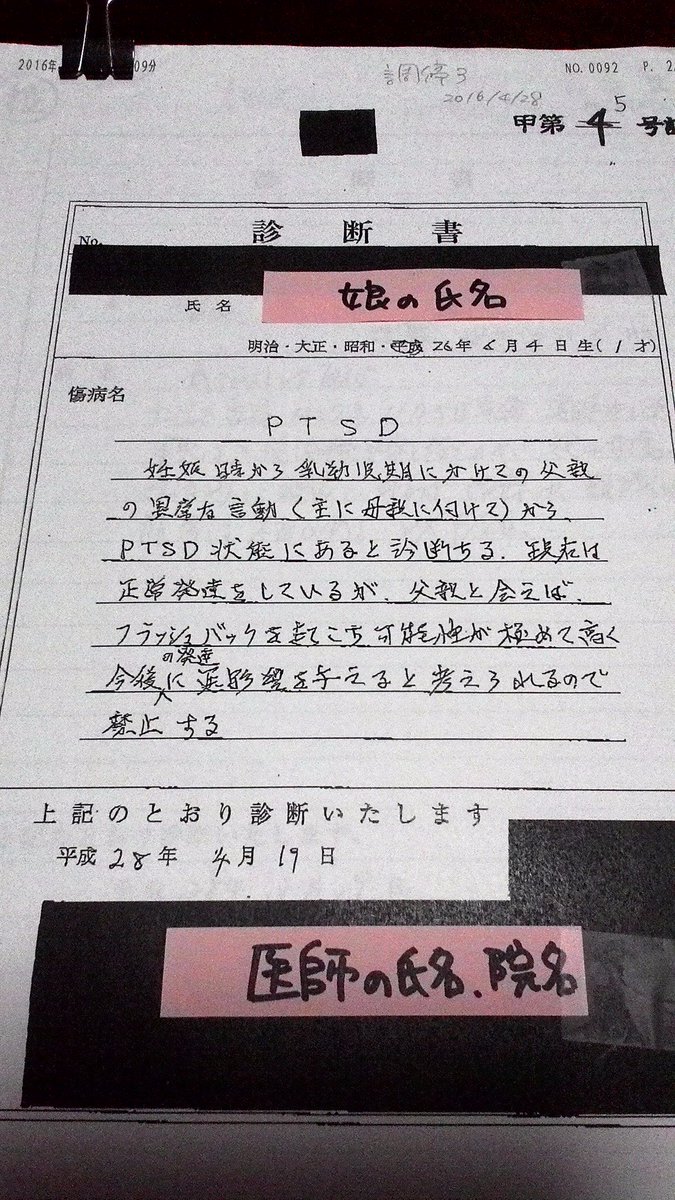 2016年 09分 NO. 0092 P. 2
調停3
2016/4/28
甲第 4 5 号
診断書
No.
娘の氏名
氏名
明治・大正・昭和・平成 26年 6月 4日生(1才)
傷病名
PTSD
妊娠時から乳幼児期にかけての父親
の異常な言動(主に母親に付けて)から、
PTSD状態にあると診断する。現在は
正常発達をしているが、父親と会えば、
フラッシュバックを起こす可能性が極めて高く
の発達
今後に悪影響を与えると考えられるので
禁止する
上記のとおり診断いたします
平成28年 4月19日
医師の氏名、院名